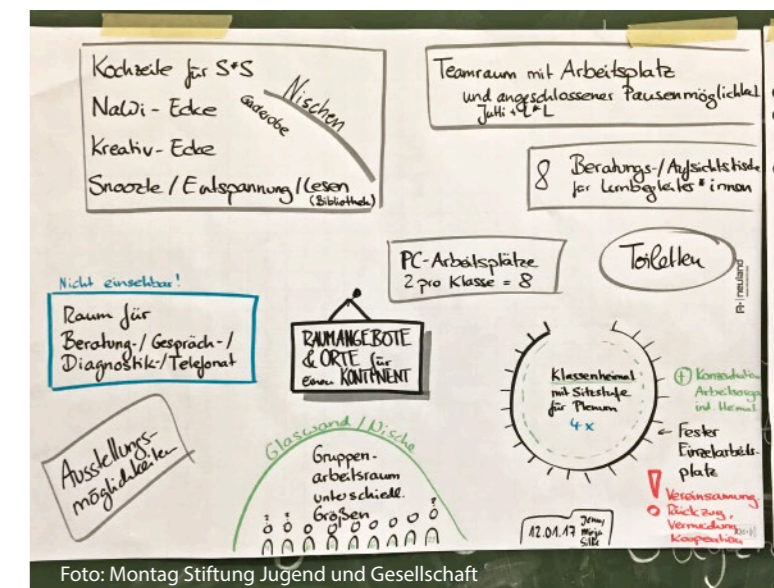 Kochzeile für S*S
NaWi-Ecke
Kreativ-Ecke
Snoozle / Entspannung / Lesen
(Bibliothek)
Garderobe
Nischen
Teamraum mit Arbeitsplatz
und angeschlossener Pausenmöglichkei
JuHi + L*L
8 Beratungs-/Aufsichtstische
für Lernbegleiter*innen
PC-Arbeitsplätze
2 pro Klasse = 8
Toiletten
neuland
Nicht einsehbar!
Raum für
Beratung-/Gespräch-/
Diagnostik-/Telefonat
RAUMANGEBOTE
& ORTE für
einen KONTINENT
Klassenheimat
mit Sitzstufe
für Plenum
4x
+ Konzentration
Arbeitsorga
ind. Heimat
← Fester
Einzelarbeits-
platz
Vereinsamung
Rückzug,
Vermeidung
Kooperation
Ausstellungs-
möglichkeiten
Glaswand / Nische
Gruppen-
arbeitsraum
unterschiedl.
Größen
12.01.17
Mirja
Silke
Foto: Montag Stiftung Jugend und Gesellschaft